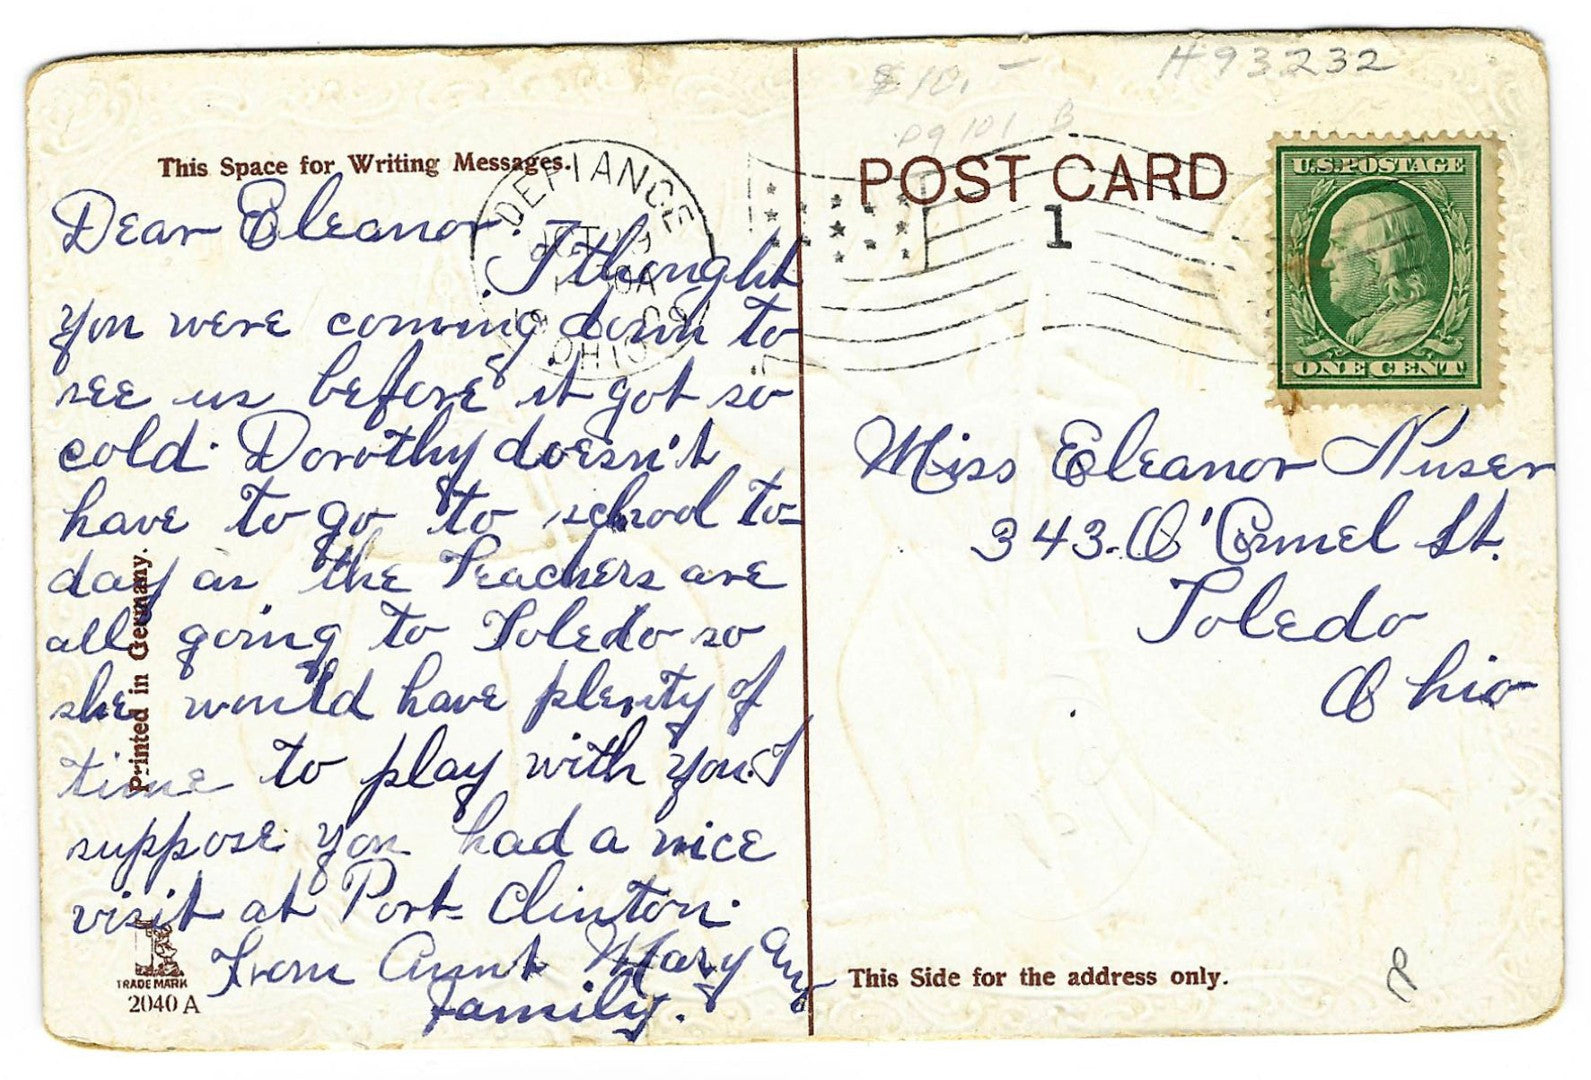 H93232
$10.—
pg 101 B
This Space for Writing Messages.
POST CARD
DEFIANCE
OCT
OHIO
1
U.S. POSTAGE
ONE CENT
Dear Eleanor.
I thought
you were coming down to
see us before it got so
cold. Dorothy doesn't
have to go to school to=
day as the Teachers are
all going to Toledo so
she would have plenty of
time to play with you. I
suppose you had a nice
visit at Port Clinton.
From Aunt Mary
family.
Printed in Germany.
TRADE MARK
2040 A
Miss Eleanor Nuser
343. O'Connel St.
Toledo
Ohio
This Side for the address only.
8